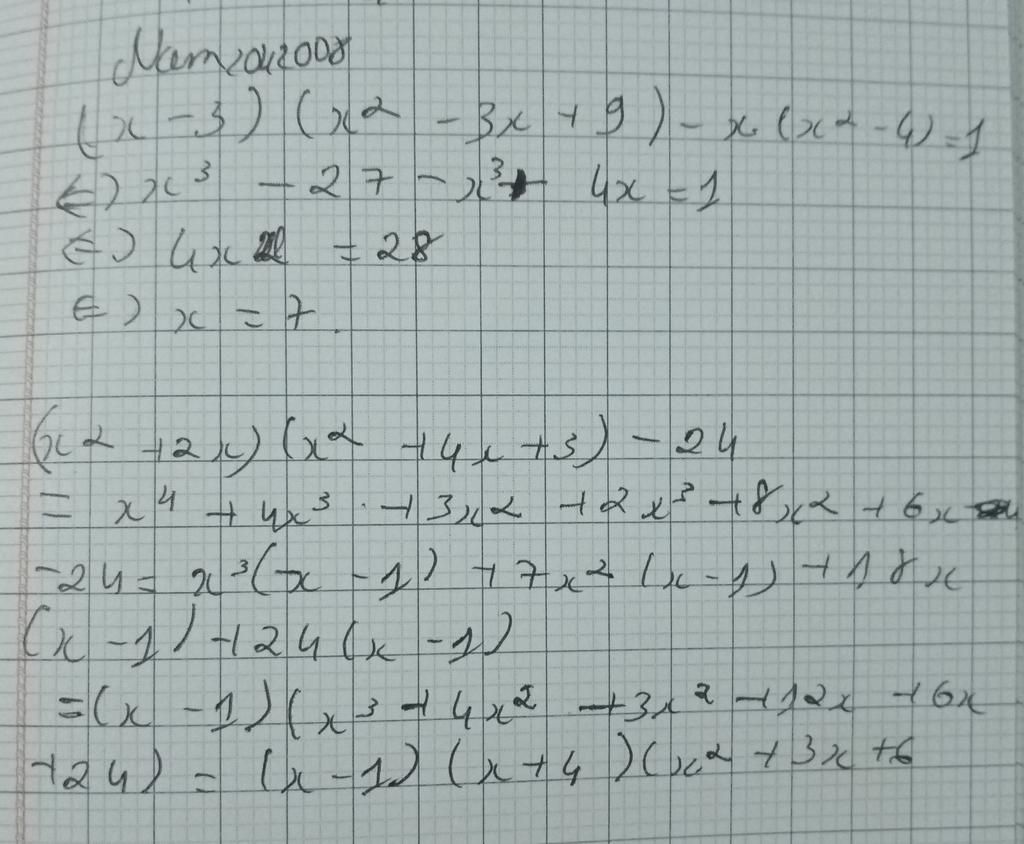 Nam2042008
(x - 3) (x² - 3x + 9) - x.(x² - 4) = 1
<=> x³ - 27 - x³ + 4x = 1
<=> 4x = 28
<=> x = 7.
(x² + 2x) (x² + 4x + 3) - 24
= x⁴ + 4x³ + 3x² + 2x³ + 8x² + 6x
-24 = x³(x - 1) + 7x² (x - 1) + 18x
(x - 1) + 24 (x - 1)
= (x - 1) (x³ + 4x² + 3x² + 12x + 6x
+ 24) = (x - 1) (x + 4) (x² + 3x + 6